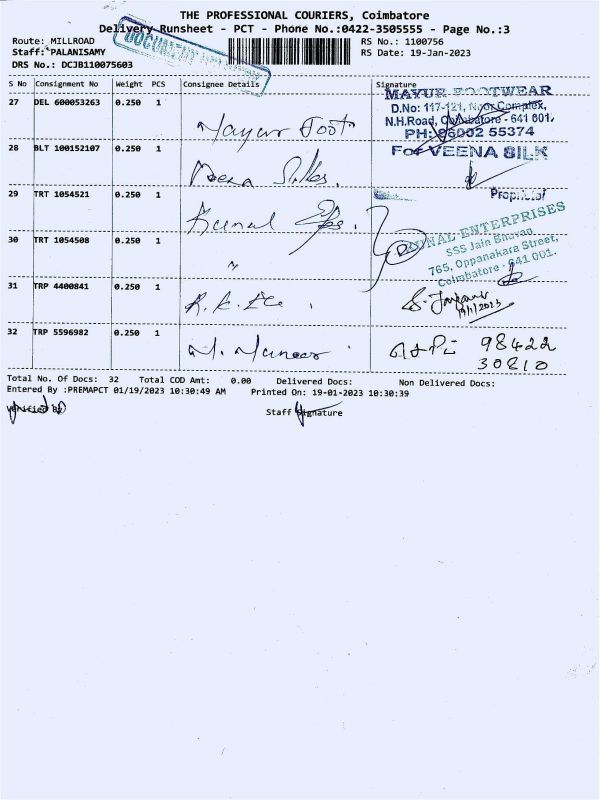 THE PROFESSIONAL COURIERS, Coimbatore
Delivery Runsheet - PCT - Phone No.:0422-3505555 - Page No.:3
Route: MILLROAD
RS No.: 1100756
Staff: PALANISAMY
RS Date: 19-Jan-2023
DRS No.: DCJB110075603
DOCUMENT
S No Consignment No Weight PCS Consignee Details Signature
27 DEL 600053263 0.250 1
Mayur Foot
MAYUR FOOTWEAR
D.No: 117-121, Noor Complex,
N.H.Road, Coimbatore - 641 001.
PH: 95002 55374
28 BLT 100152107 0.250 1
Veena Silks.
For VEENA SILK
Proprietor
29 TRT 1054521 0.250 1
Kunal
KUNAL ENTERPRISES
SSS Jain Bhavan,
765, Oppanakara Street,
Coimbatore - 641 001.
30 TRT 1054508 0.250 1
"
31 TRP 4400841 0.250 1
R. K.
19/1/2023
32 TRP 5596982 0.250 1
M.
98422
30810
Total No. Of Docs: 32 Total COD Amt: 0.00 Delivered Docs: Non Delivered Docs:
Entered By :PREMAPCT 01/19/2023 10:30:49 AM Printed On: 19-01-2023 10:30:39
Verified By
Staff Signature